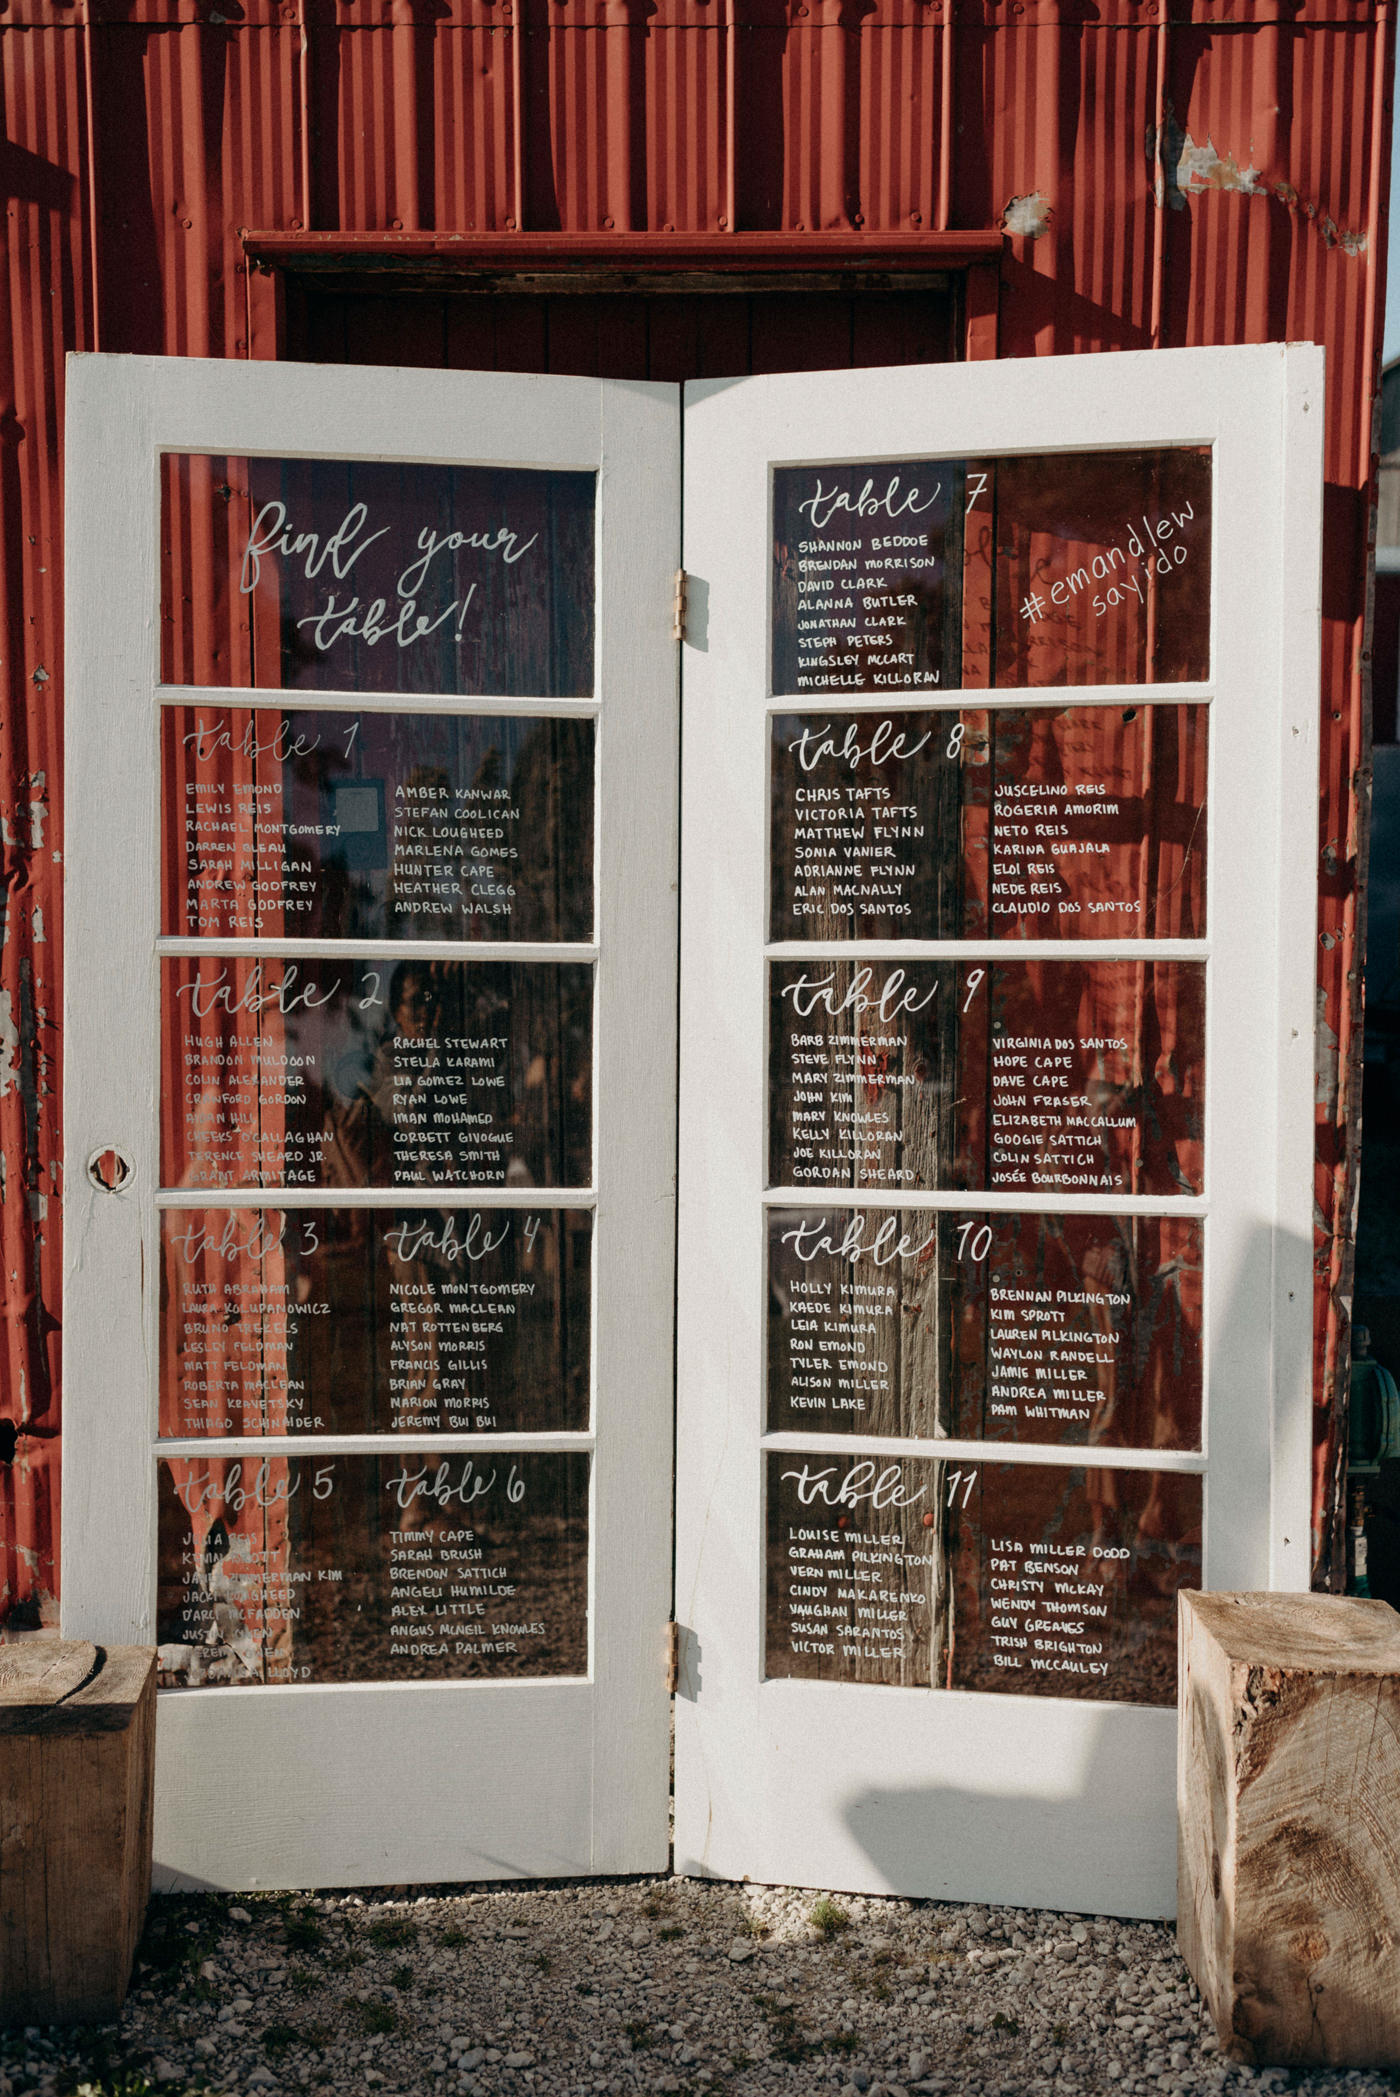 find your
table!
table 1
EMILY EMOND
LEWIS REIS
RACHAEL MONTGOMERY
DARREN BLEAU
SARAH MILLIGAN
ANDREW GODFREY
MARTA GODFREY
TOM REIS
AMBER KANWAR
STEFAN COOLICAN
NICK LOUGHEED
MARLENA GOMES
HUNTER CAPE
HEATHER CLEGG
ANDREW WALSH
table 2
HUGH ALLEN
BRANDON MULDOON
COLIN ALEXANDER
CRAWFORD GORDON
HILL
CHEEKS O'CALLAGHAN
TERENCE SHEARD JR.
GRANT ARMITAGE
RACHEL STEWART
STELLA KARAMI
LIA GOMEZ LOWE
RYAN LOWE
IMAN MOHAMED
CORBETT GIVOGUE
THERESA SMITH
PAUL WATCHORN
table 3
RUTH ABRAHAM
LAURA KOLUPANOWICZ
BRUNO TREKELS
LESLEY FELDMAN
MATT FELDMAN
ROBERTA MACLEAN
SEAN KRAVETSKY
THIAGO SCHNAIDER
table 4
NICOLE MONTGOMERY
GREGOR MACLEAN
NAT ROTTENBERG
ALYSON MORRIS
FRANCIS GILLIS
BRIAN GRAY
MARION MORRIS
JEREMY BUI BUI
table 5
JULIA REIS
KEVIN
JANET ZIMMERMAN KIM
JACK LOUGHEED
D'ARCY MCFADDEN
JUSTIN
LLOYD
table 6
TIMMY CAPE
SARAH BRUSH
BRENDON SATTICH
ANGELI HUMILDE
ALEX LITTLE
ANGUS MCNEIL KNOWLES
ANDREA PALMER
table 7
SHANNON BEDDOE
BRENDAN MORRISON
DAVID CLARK
ALANNA BUTLER
JONATHAN CLARK
STEPH PETERS
KINGSLEY MCCART
MICHELLE KILLORAN
#emandlew
sayido
table 8
CHRIS TAFTS
VICTORIA TAFTS
MATTHEW FLYNN
SONIA VANIER
ADRIANNE FLYNN
ALAN MACNALLY
ERIC DOS SANTOS
JUSCELINO REIS
ROGERIA AMORIM
NETO REIS
KARINA GUAJALA
ELOI REIS
NEDE REIS
CLAUDIO DOS SANTOS
table 9
BARB ZIMMERMAN
STEVE FLYNN
MARY ZIMMERMAN
JOHN KIM
MARY KNOWLES
KELLY KILLORAN
JOE KILLORAN
GORDAN SHEARD
VIRGINIA DOS SANTOS
HOPE CAPE
DAVE CAPE
JOHN FRASER
ELIZABETH MACCALLUM
GOOGIE SATTICH
COLIN SATTICH
JOSÉE BOURBONNAIS
table 10
HOLLY KIMURA
KAEDE KIMURA
LEIA KIMURA
RON EMOND
TYLER EMOND
ALISON MILLER
KEVIN LAKE
BRENNAN PILKINGTON
KIM SPROTT
LAUREN PILKINGTON
WAYLON RANDELL
JAMIE MILLER
ANDREA MILLER
PAM WHITMAN
table 11
LOUISE MILLER
GRAHAM PILKINGTON
VERN MILLER
CINDY MAKARENKO
VAUGHAN MILLER
SUSAN SARANTOS
VICTOR MILLER
LISA MILLER DODD
PAT BENSON
CHRISTY MCKAY
WENDY THOMSON
GUY GREAVES
TRISH BRIGHTON
BILL MCCAULEY